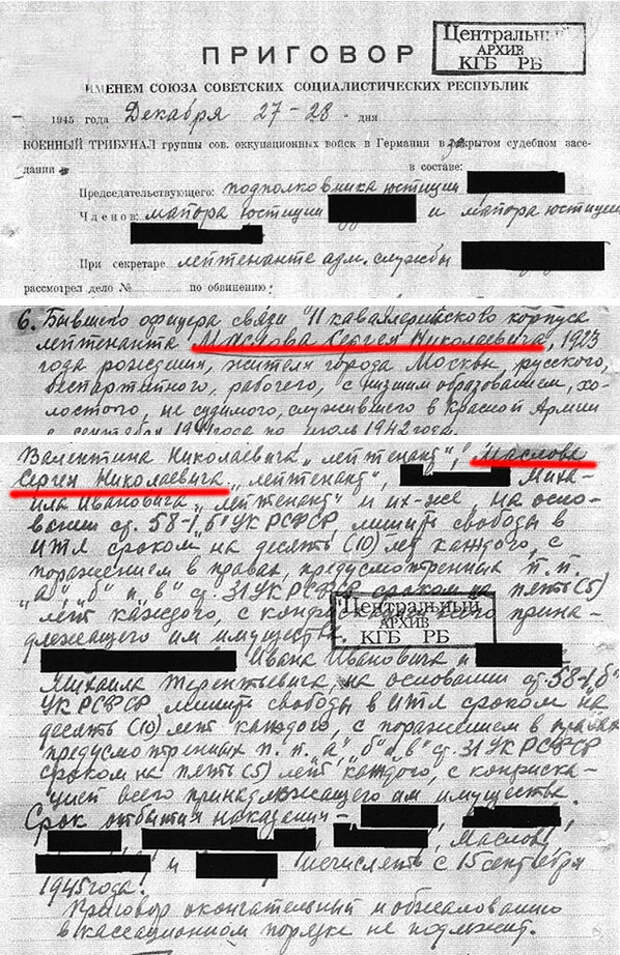 ПРИГОВОР
Центральный
АРХИВ
КГБ РБ
ИМЕНЕМ СОЮЗА СОВЕТСКИХ СОЦИАЛИСТИЧЕСКИХ РЕСПУБЛИК
1945 года Декабря 27-28. дня
ВОЕННЫЙ ТРИБУНАЛ группы сов. оккупационных войск в Германии в закрытом судебном засе-
дании в составе:
Председательствующего: подполковника юстиции
Членов: майора юстиции и майора юстиции
При секретаре лейтенанте адм. службы
рассмотрел дело № по обвинению:
6. Бывшего офицера связи 11 кавалерийского корпуса
лейтенанта Маслова Сергея Николаевича, 1923
года рождения, жителя города Москвы, русского,
беспартийного, рабочего, с низшим образованием, хо-
лостого, не судимого, служившего в Красной Армии
с сентября 1941 года по июль 1942 года.
Валентина Николаевича „лейтенант", Маслова
Сергея Николаевича „лейтенант", Миха-
ила Ивановича „лейтенант" и их-же на осно-
вании ст. 58-1 „б" УК РСФСР лишить свободы в
ИТЛ сроком на десять (10) лет каждого, с
поражением в правах, предусмотренных п.п.
„а", „б" и „в" ст. 31 УК РСФСР сроком на пять (5)
лет каждого, с конфискацией всего прина-
длежащего им имущества.
Центральный
АРХИВ
КГБ РБ
Ивана Ивановича и
Михаила Терентьевича, на основании ст. 58-1 „б"
УК РСФСР лишить свободы в ИТЛ сроком на
десять (10) лет каждого, с поражением в правах
предусмотренных п.п. „а", „б" и „в" ст. 31 УК РСФСР
сроком на пять (5) лет каждого, с конфиска-
цией всего принадлежащего им имущества.
Срок отбытия наказания -
Маслову,
и исчислять с 15 сентября
1945 года.
Приговор окончательный и обжалованию
в кассационном порядке не подлежит.